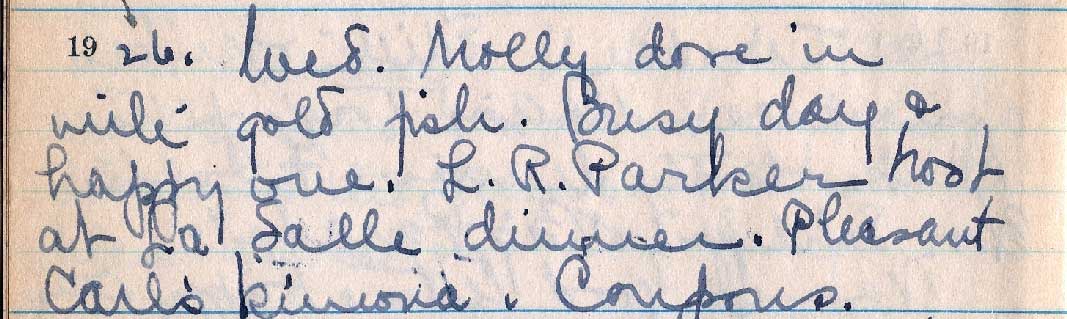 1926. Wed. Molly dove in
with gold fish. Busy day &
happy one. L. R. Parker host
at La Salle dinner. Pleasant
Carl's kimona. Coupons.